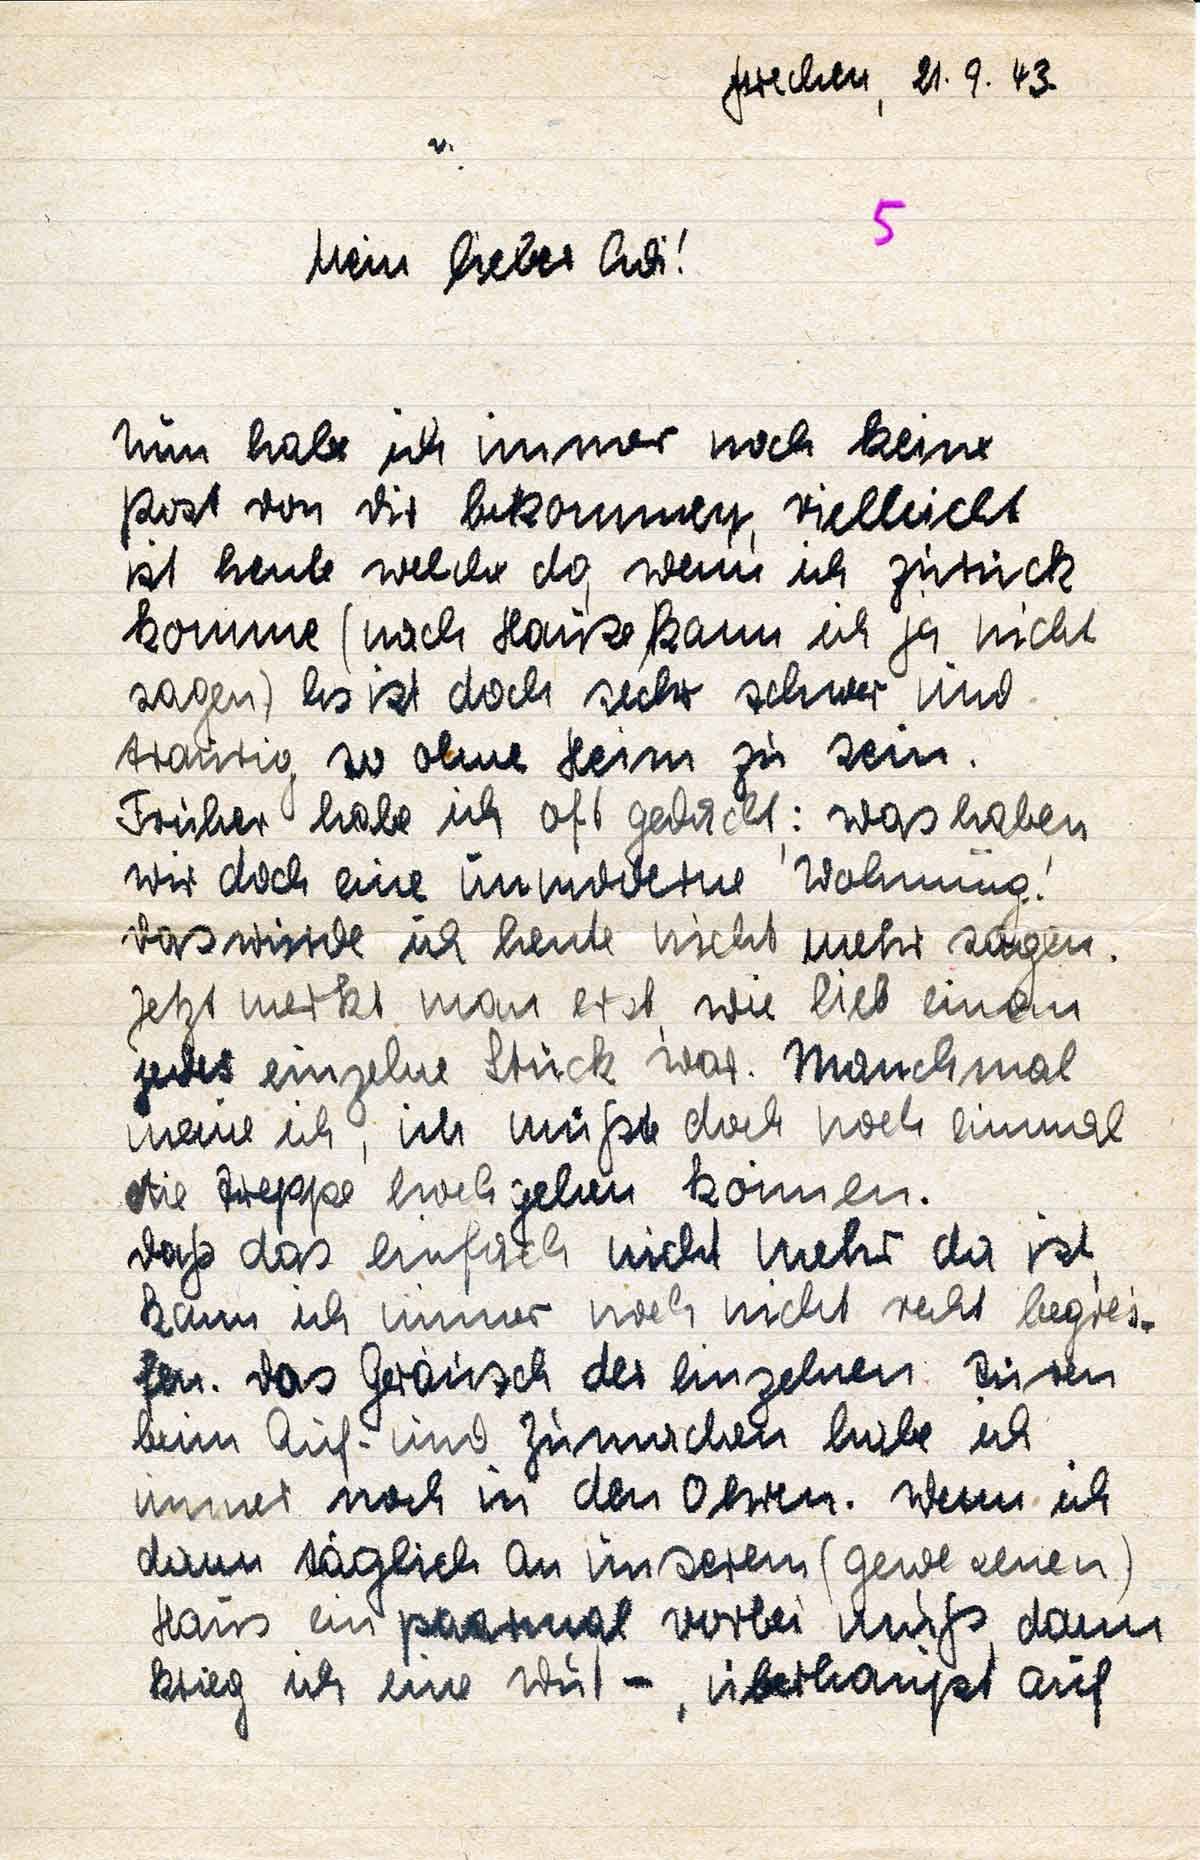 Frechen, 21. 9. 43.
5
Mein lieber Adi!
Nun habe ich immer noch keine
Post von Dir bekommen, vielleicht
ist heute welche da, wenn ich zurück
komme (nach Hause kann ich ja nicht
sagen) Es ist doch sehr schwer und
traurig, so ohne Heim zu sein.
Früher habe ich oft gedacht: was haben
wir doch eine unmoderne Wohnung!
Das würde ich heute nicht mehr sagen.
Jetzt merkt man erst, wie lieb einem
jedes einzelne Stück war. Manchmal
meine ich, ich müßte doch noch einmal
die Treppe hoch gehen können.
Daß das einfach nicht mehr da ist,
kann ich immer noch nicht recht begrei-
fen. Das Geräusch der einzelnen Türen
beim Auf- und Zumachen habe ich
immer noch in den Ohren. Wenn ich
dann täglich an unserem (gewesenen)
Haus ein paarmal vorbei muß, dann
krieg ich eine Wut –, überhaupt auf